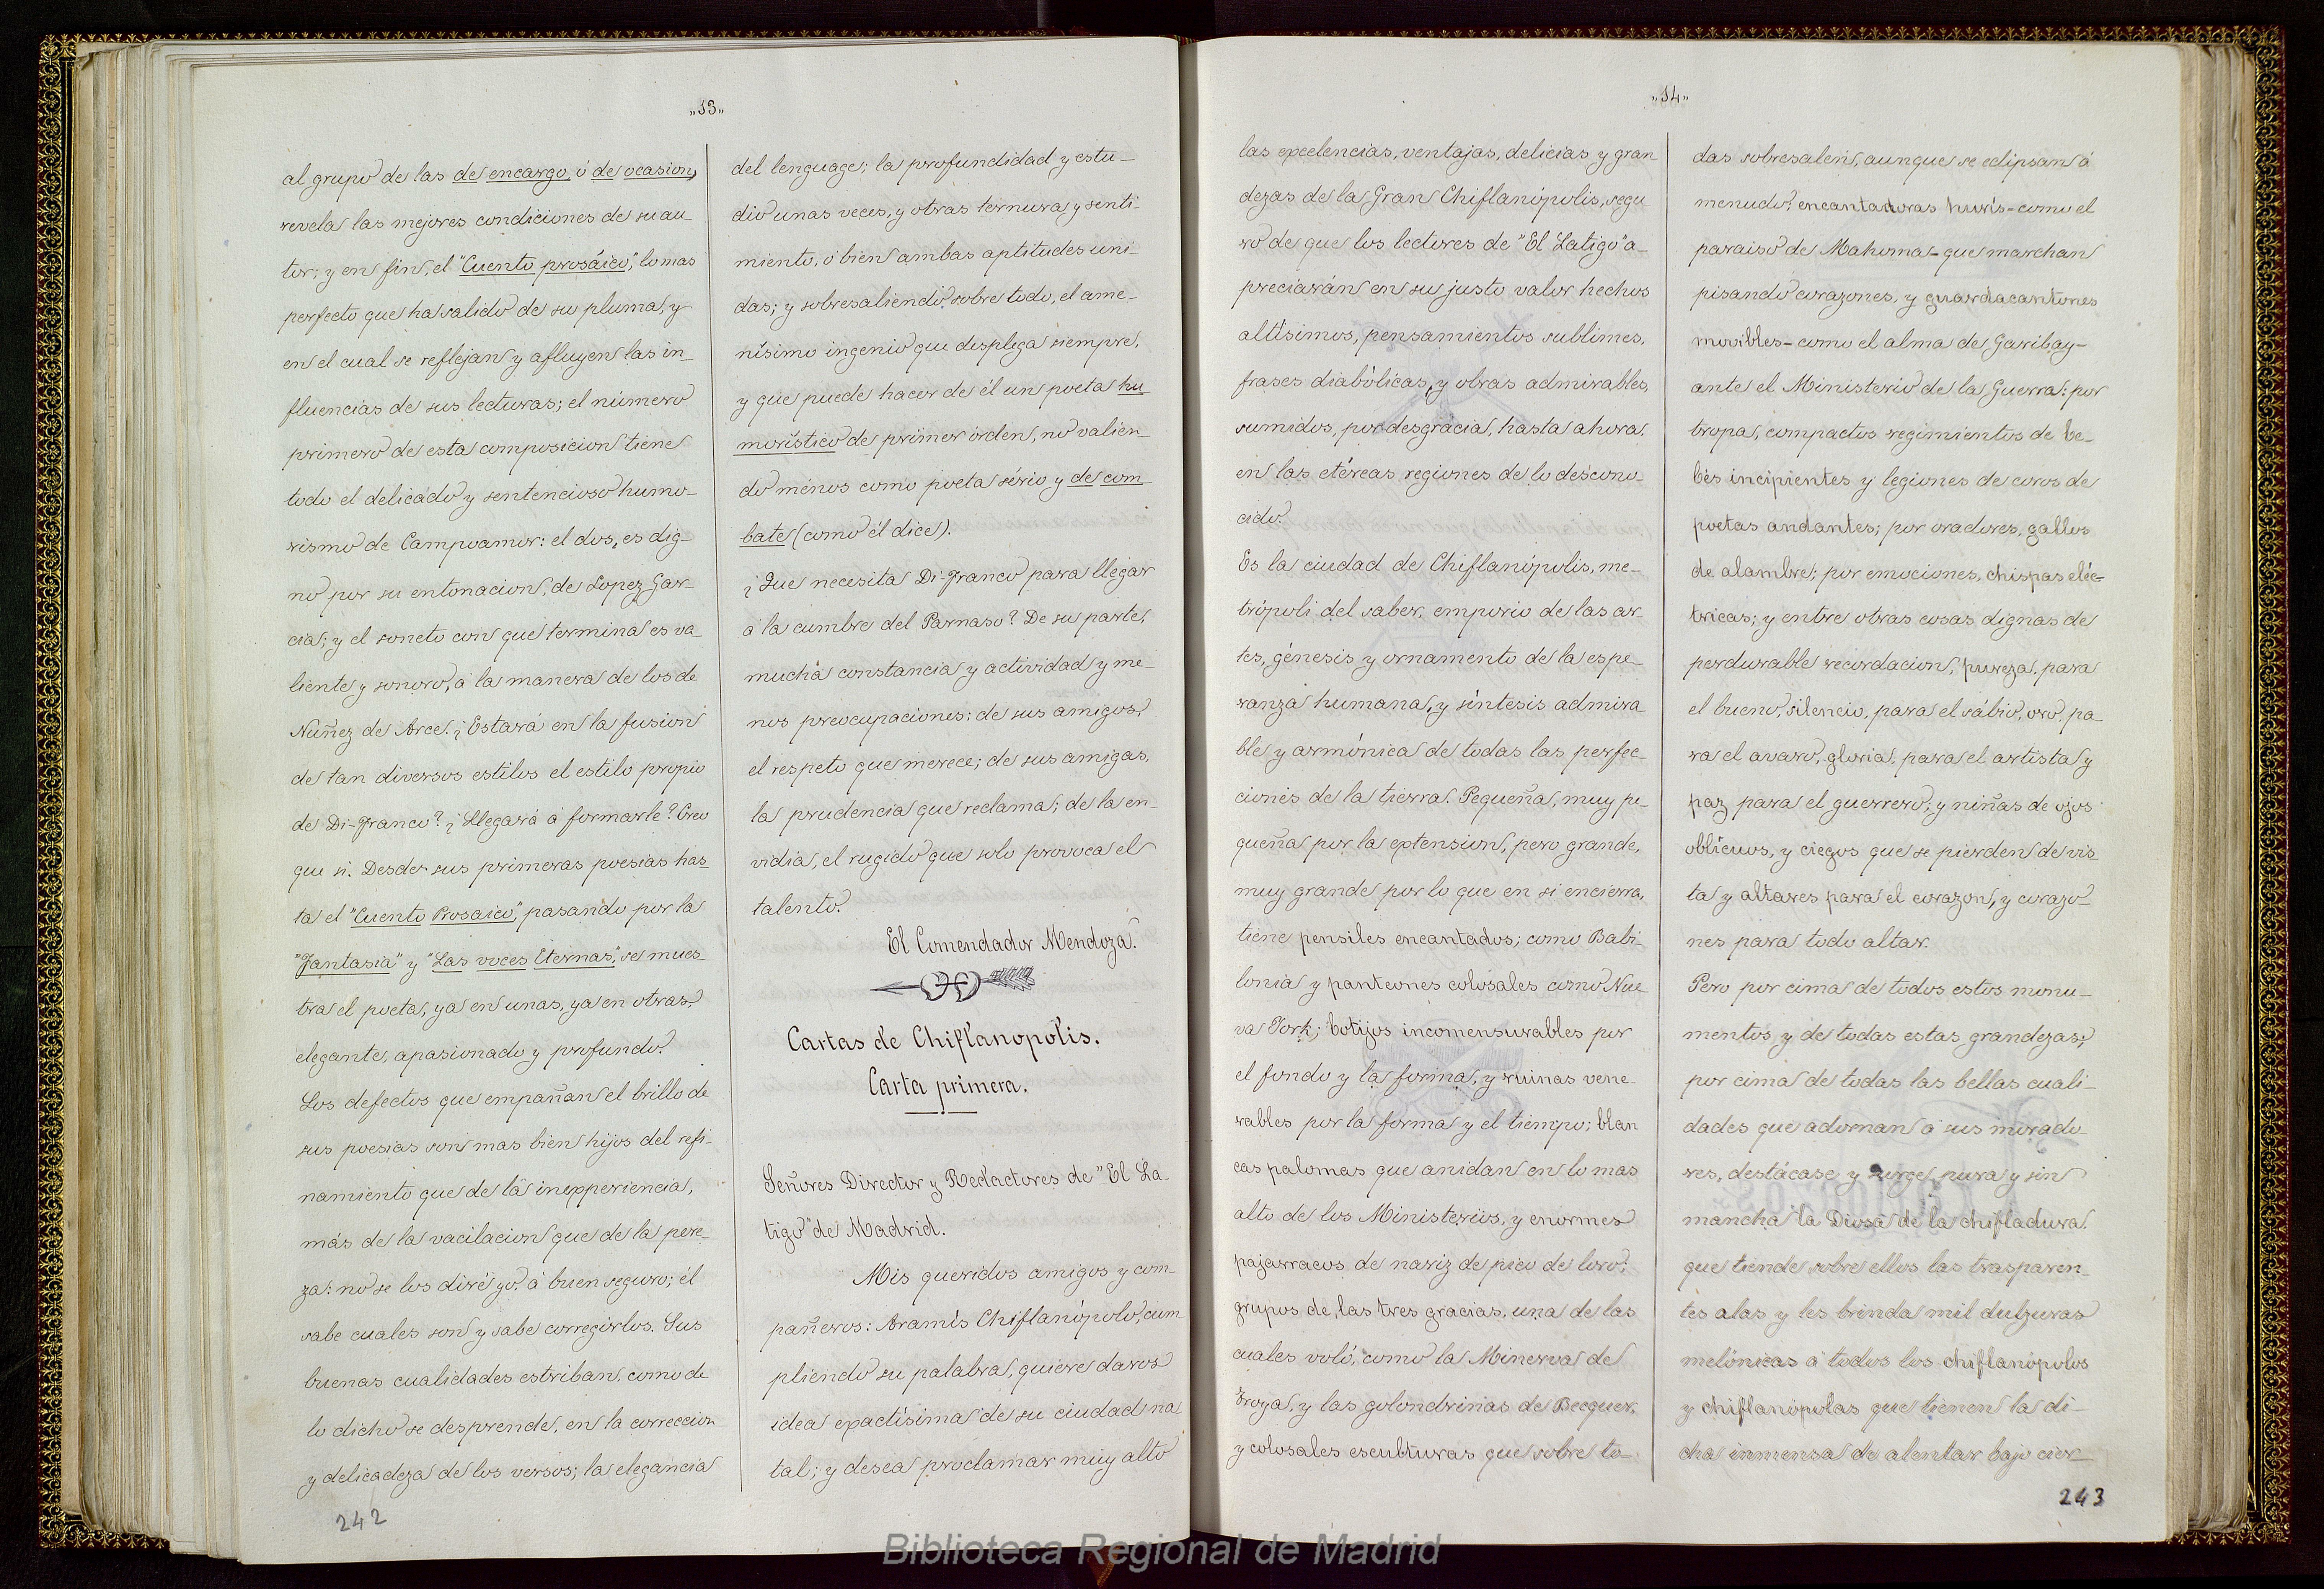 „13„
al grupo de las de encargo, ó de ocasion,
revela las mejores condiciones de su au-
tor; y en fin, el "Cuento prosáico", lo mas
perfecto que ha salido de su pluma, y
en el cual se reflejan y afluyen las in-
fluencias de sus lecturas; el número
primero de esta composicion tiene
todo el delicado y sentencioso humo-
rismo de Campoamor: el dos, es dig-
no por su entonacion, de Lopez Gar-
cia; y el soneto con que termina es va-
liente y sonoro, á la manera de los de
Nuñez de Arce. ¿Estará en la fusion
de tan diversos estilos el estilo propio
de Di-Franco? ¿Llegará á formarle? Creo
que si. Desde sus primeras poesias has-
ta el "Cuento Prosaico", pasando por la
"Fantasia" y "Las voces Eternas", se mues-
tra el poeta, ya en unas, ya en otras,
elegante, apasionado y profundo.
Los defectos que empañan el brillo de
sus poesias son mas bien hijos del refi-
namiento que de la inexperiencia,
más de la vacilacion que de la pere-
za: no se los diré yo á buen seguro; él
sabe cuales son y sabe corregirlos. Sus
buenas cualidades estriban, como de
lo dicho se desprende, en la correccion
y delicadeza de los versos; la elegancia
242
del lenguage; la profundidad y estu-
dio unas veces, y otras ternura y senti-
miento, ó bien ambas aptitudes uni-
das; y sobresaliendo sobre todo, el ame-
nísimo ingenio que desplega siempre,
y que puede hacer de él un poeta hu
morístico de primer órden, no valien-
do ménos como poeta sério y de com
bate (como él dice).
¿Que necesita Di-Franco para llegar
á la cumbre del Parnaso? De su parte,
mucha constancia y actividad y me-
nos preocupaciones: de sus amigos,
el respeto que merece; de sus amigas,
la prudencia que reclama; de la en-
vidia, el rugido que solo provoca el
talento.
El Comendador Mendoza.
Cartas de Chiflanopolis.
Carta primera.
Señores Director y Redactores de "El La-
tigo" de Madrid.
Mis queridos amigos y com-
pañeros: Aramís Chiflanópolo, cum
pliendo su palabra, quiere daros
idea exactísima de su ciudad na
tal; y desea proclamar muy alto
„14„
las excelencias, ventajas, delicias y gran
dezas de la Gran Chiflanópolis, segu
ro de que los lectores de "El Latigo" a-
preciarán en su justo valor hechos
altísimos, pensamientos sublimes,
frases diabólicas, y obras admirables,
sumidos, por desgracia, hasta ahora,
en las etéreas regiones de lo descono-
cido.
Es la ciudad de Chiflanópolis, me-
trópoli del saber, emporio de las ar-
tes, génesis y ornamento de la espe-
ranza humana, y síntesis admira-
ble y armónica de todas las perfec-
ciones de la tierra. Pequeña, muy pe-
queña por la extension, pero grande,
muy grande por lo que en si encierra,
tiene pensiles encantados; como Babi-
lonia y panteones colosales como Nue
va York; botijos incomensurables por
el fondo y la forma, y ruinas vene-
rables por la forma y el tiempo; blan
cas palomas que anidan en lo mas
alto de los Ministerios, y enormes
pajarracos de nariz de pico de loro;
grupos de las tres gracias, una de las
cuales voló, como la Minerva de
Troya, y las golondrinas de Becquer,
y colosales esculturas que sobre to-
das sobresalen, aunque se eclipsan á
menudo; encantadoras hurís-como el
paraiso de Mahoma-que marchan
pisando corazones, y guardacantones
movibles-como el alma de Garibay-
ante el Ministerio de la Guerra: por
tropa, compactos regimientos de be-
bés incipientes y legiones de coros de
poetas andantes; por oradores, gallos
de alambre; por emociones, chispas eléc-
tricas; y entre otras cosas dignas de
perdurable recordacion, pureza, para
el bueno, silencio, para el sábio, oro, pa-
ra el avaro, gloria, para el artista y
paz para el guerrero, y niñas de ojos
oblícuos, y ciegos que se pierden de vis
ta y altares para el corazon, y corazo-
nes para todo altar.
Pero por cima de todos estos monu-
mentos y de todas estas grandezas,
por cima de todas las bellas cuali-
dades que adornan á sus morado-
res, destácase y surge pura y sin
mancha la Diosa de la chifladura,
que tiende sobre ellos las trasparen-
tes alas y les brinda mil dulzuras
melónicas á todos los chiflanópolos
y chiflanópolas que tienen la di-
cha inmensa de alentar bajo cier-
243
Biblioteca Regional de Madrid